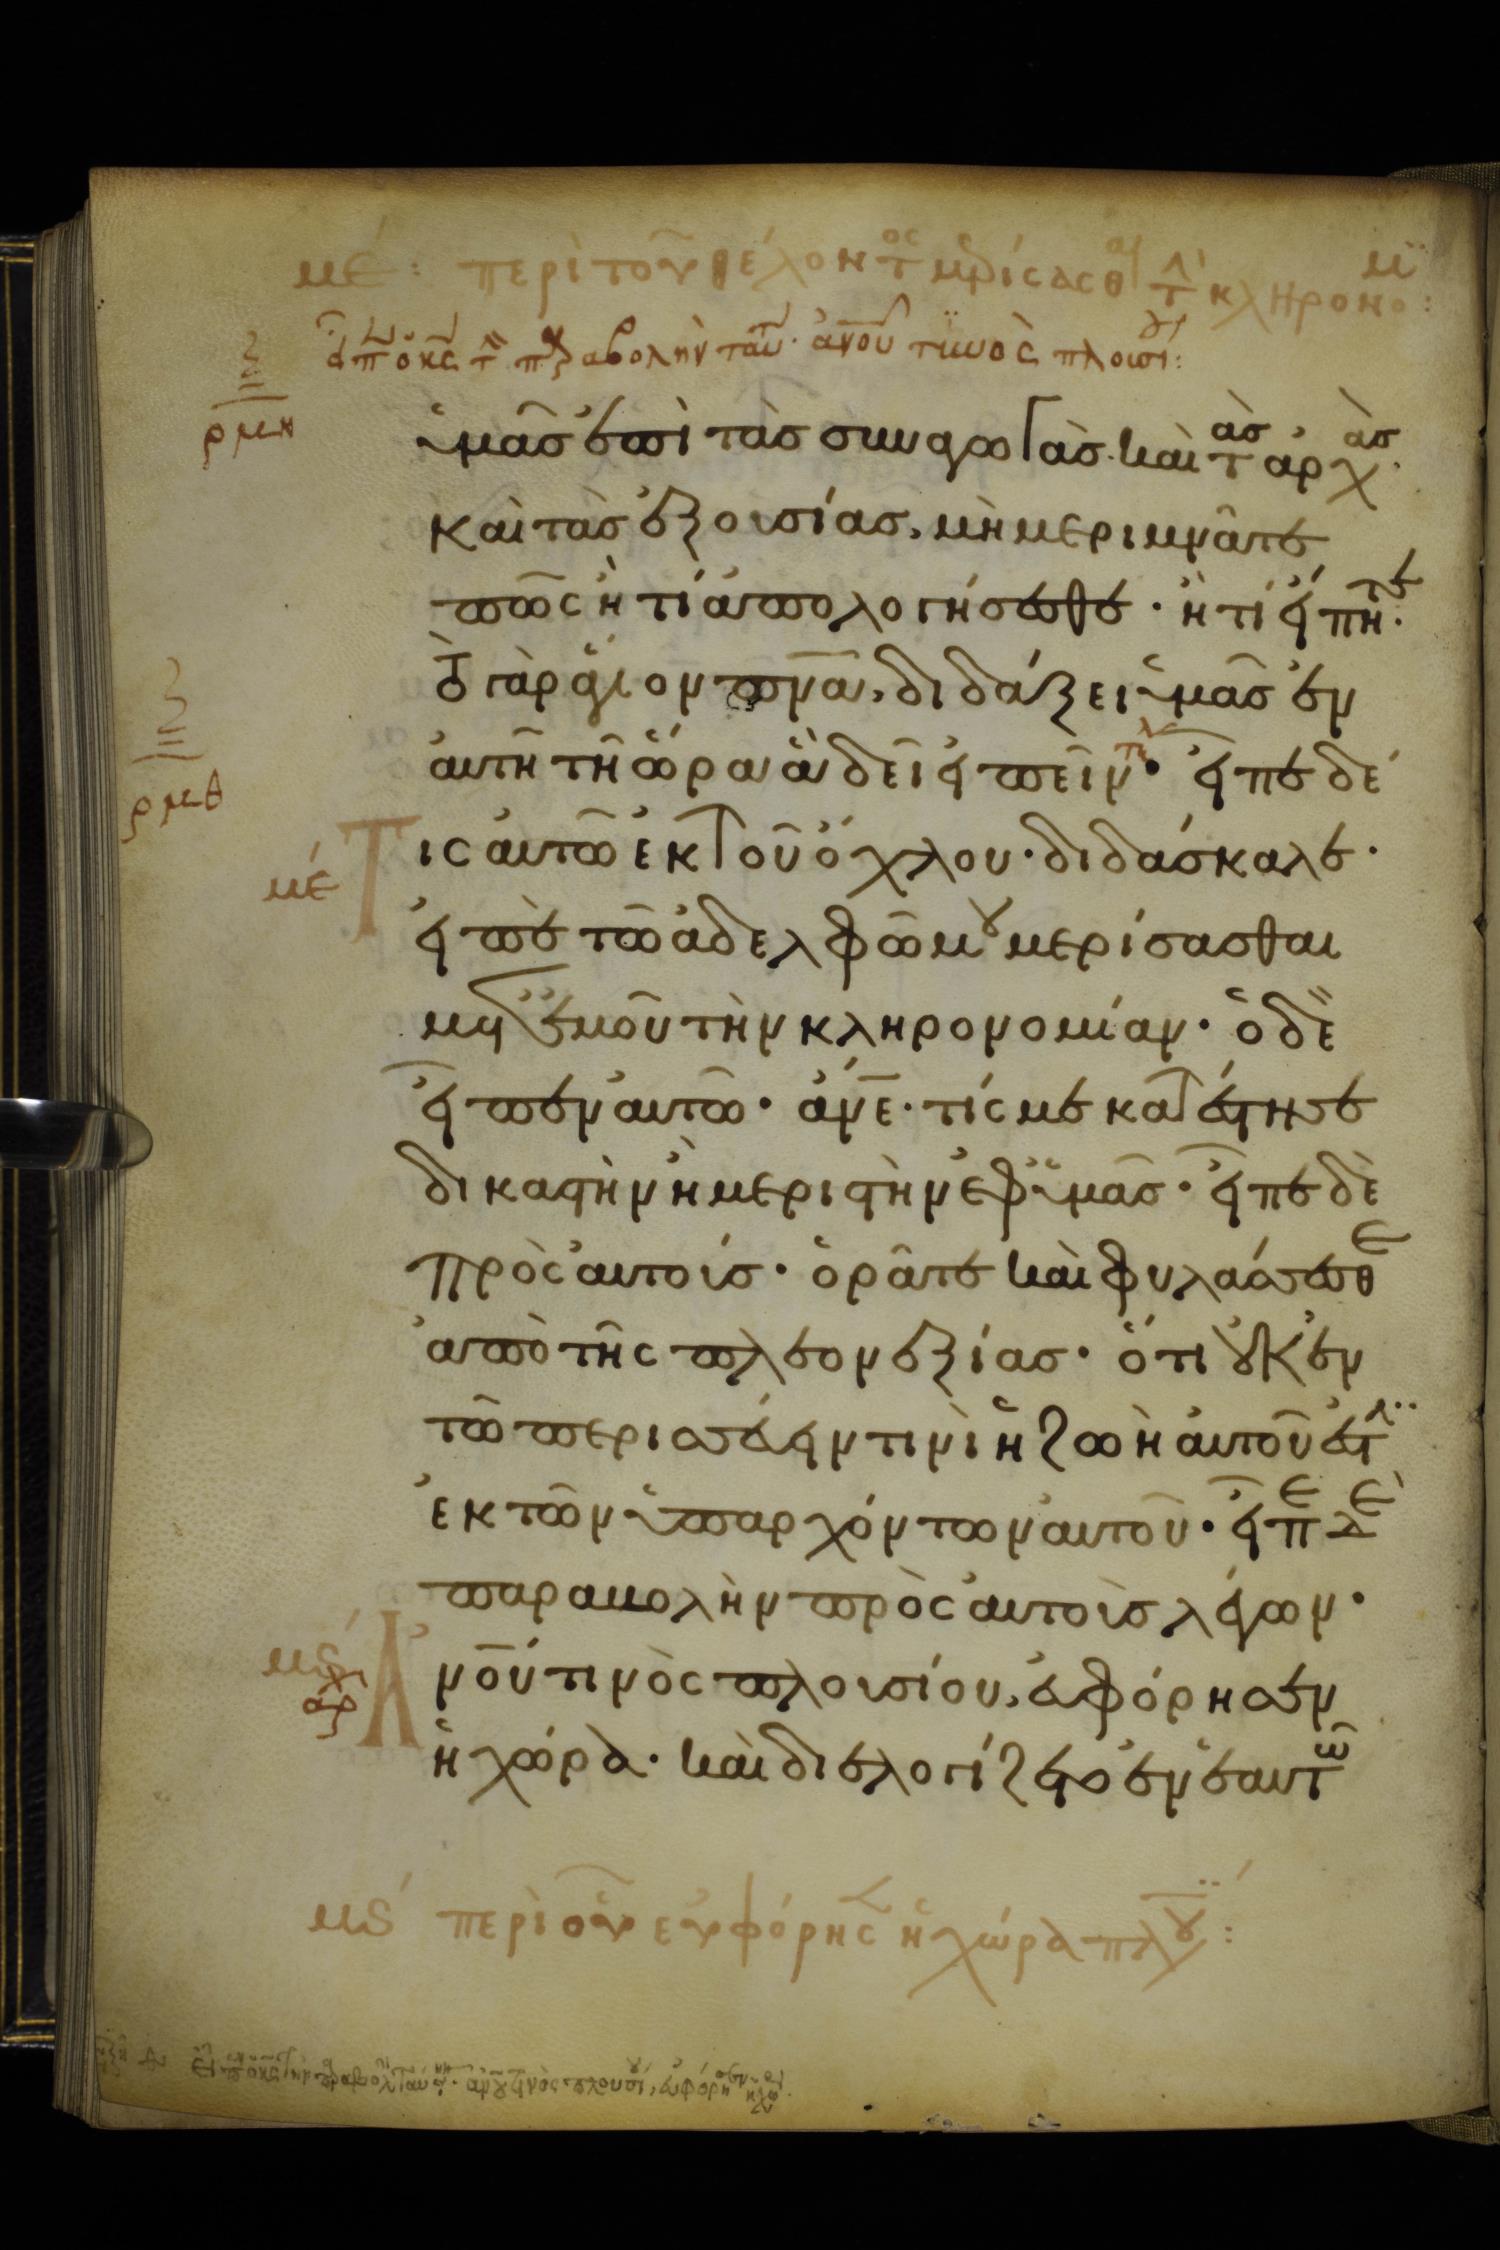 με: περὶ τοῦ θέλοντος μερίσασθαι τὴν κληρονομ:
εἶπεν ὁ κς τὴν παραβολὴν ταύτην· ἀνου τινὸς πλουσίου:
ρμη
ὑμᾶς ἐπὶ τὰς συναγωγὰς· καὶ τὰς ἀρχὰς·
καὶ τὰς ἐξουσίας, μὴ μεριμνᾶτε
πῶς ἢ τί ἀπολογήσεσθε· ἢ τί εἴπητε·
Τὸ γὰρ ἅγιον πνα, διδάξει ὑμᾶς ἐν
ρμθ
αὐτῆ τῆ ὥρα ἃ δεῖ εἰπεῖν· εἶπε δέ
με Τις αὐτῶ ἐκ τοῦ ὄχλου· διδάσκαλε·
εἰπὲ τῶ ἀδελφῶ μου μερίσασθαι
μετ ἐμοῦ τὴν κληρονομίαν· ὁ δὲ
εἶπεν αὐτῶ· ἄνε· τίς με κατέστησε
δικαστὴν ἢ μεριστὴν ἐφ ὑμᾶς· εἶπε δὲ
πρὸς αὐτούς· ὁρᾶτε καὶ φυλάσσεσθε
ἀπὸ τῆς πλεονεξίας· ὅτι οὐκ ἐν
τῶ περισσεύειν τινὶ ἡ ζωὴ αὐτοῦ ἐστὶν
ἐκ τῶν ὑπαρχόντων αὐτοῦ· εἶπε δὲ
παραβολὴν πρὸς αὐτοὺς λέγων·
μς ἀρχ Ἀνου τινὸς πλουσίου, εὐφόρησεν
ἡ χώρα· καὶ διελογίζετο ἐν ἑαυτῶ
μς περὶ οὗ εὐφόρησεν ἡ χώρα πλου: